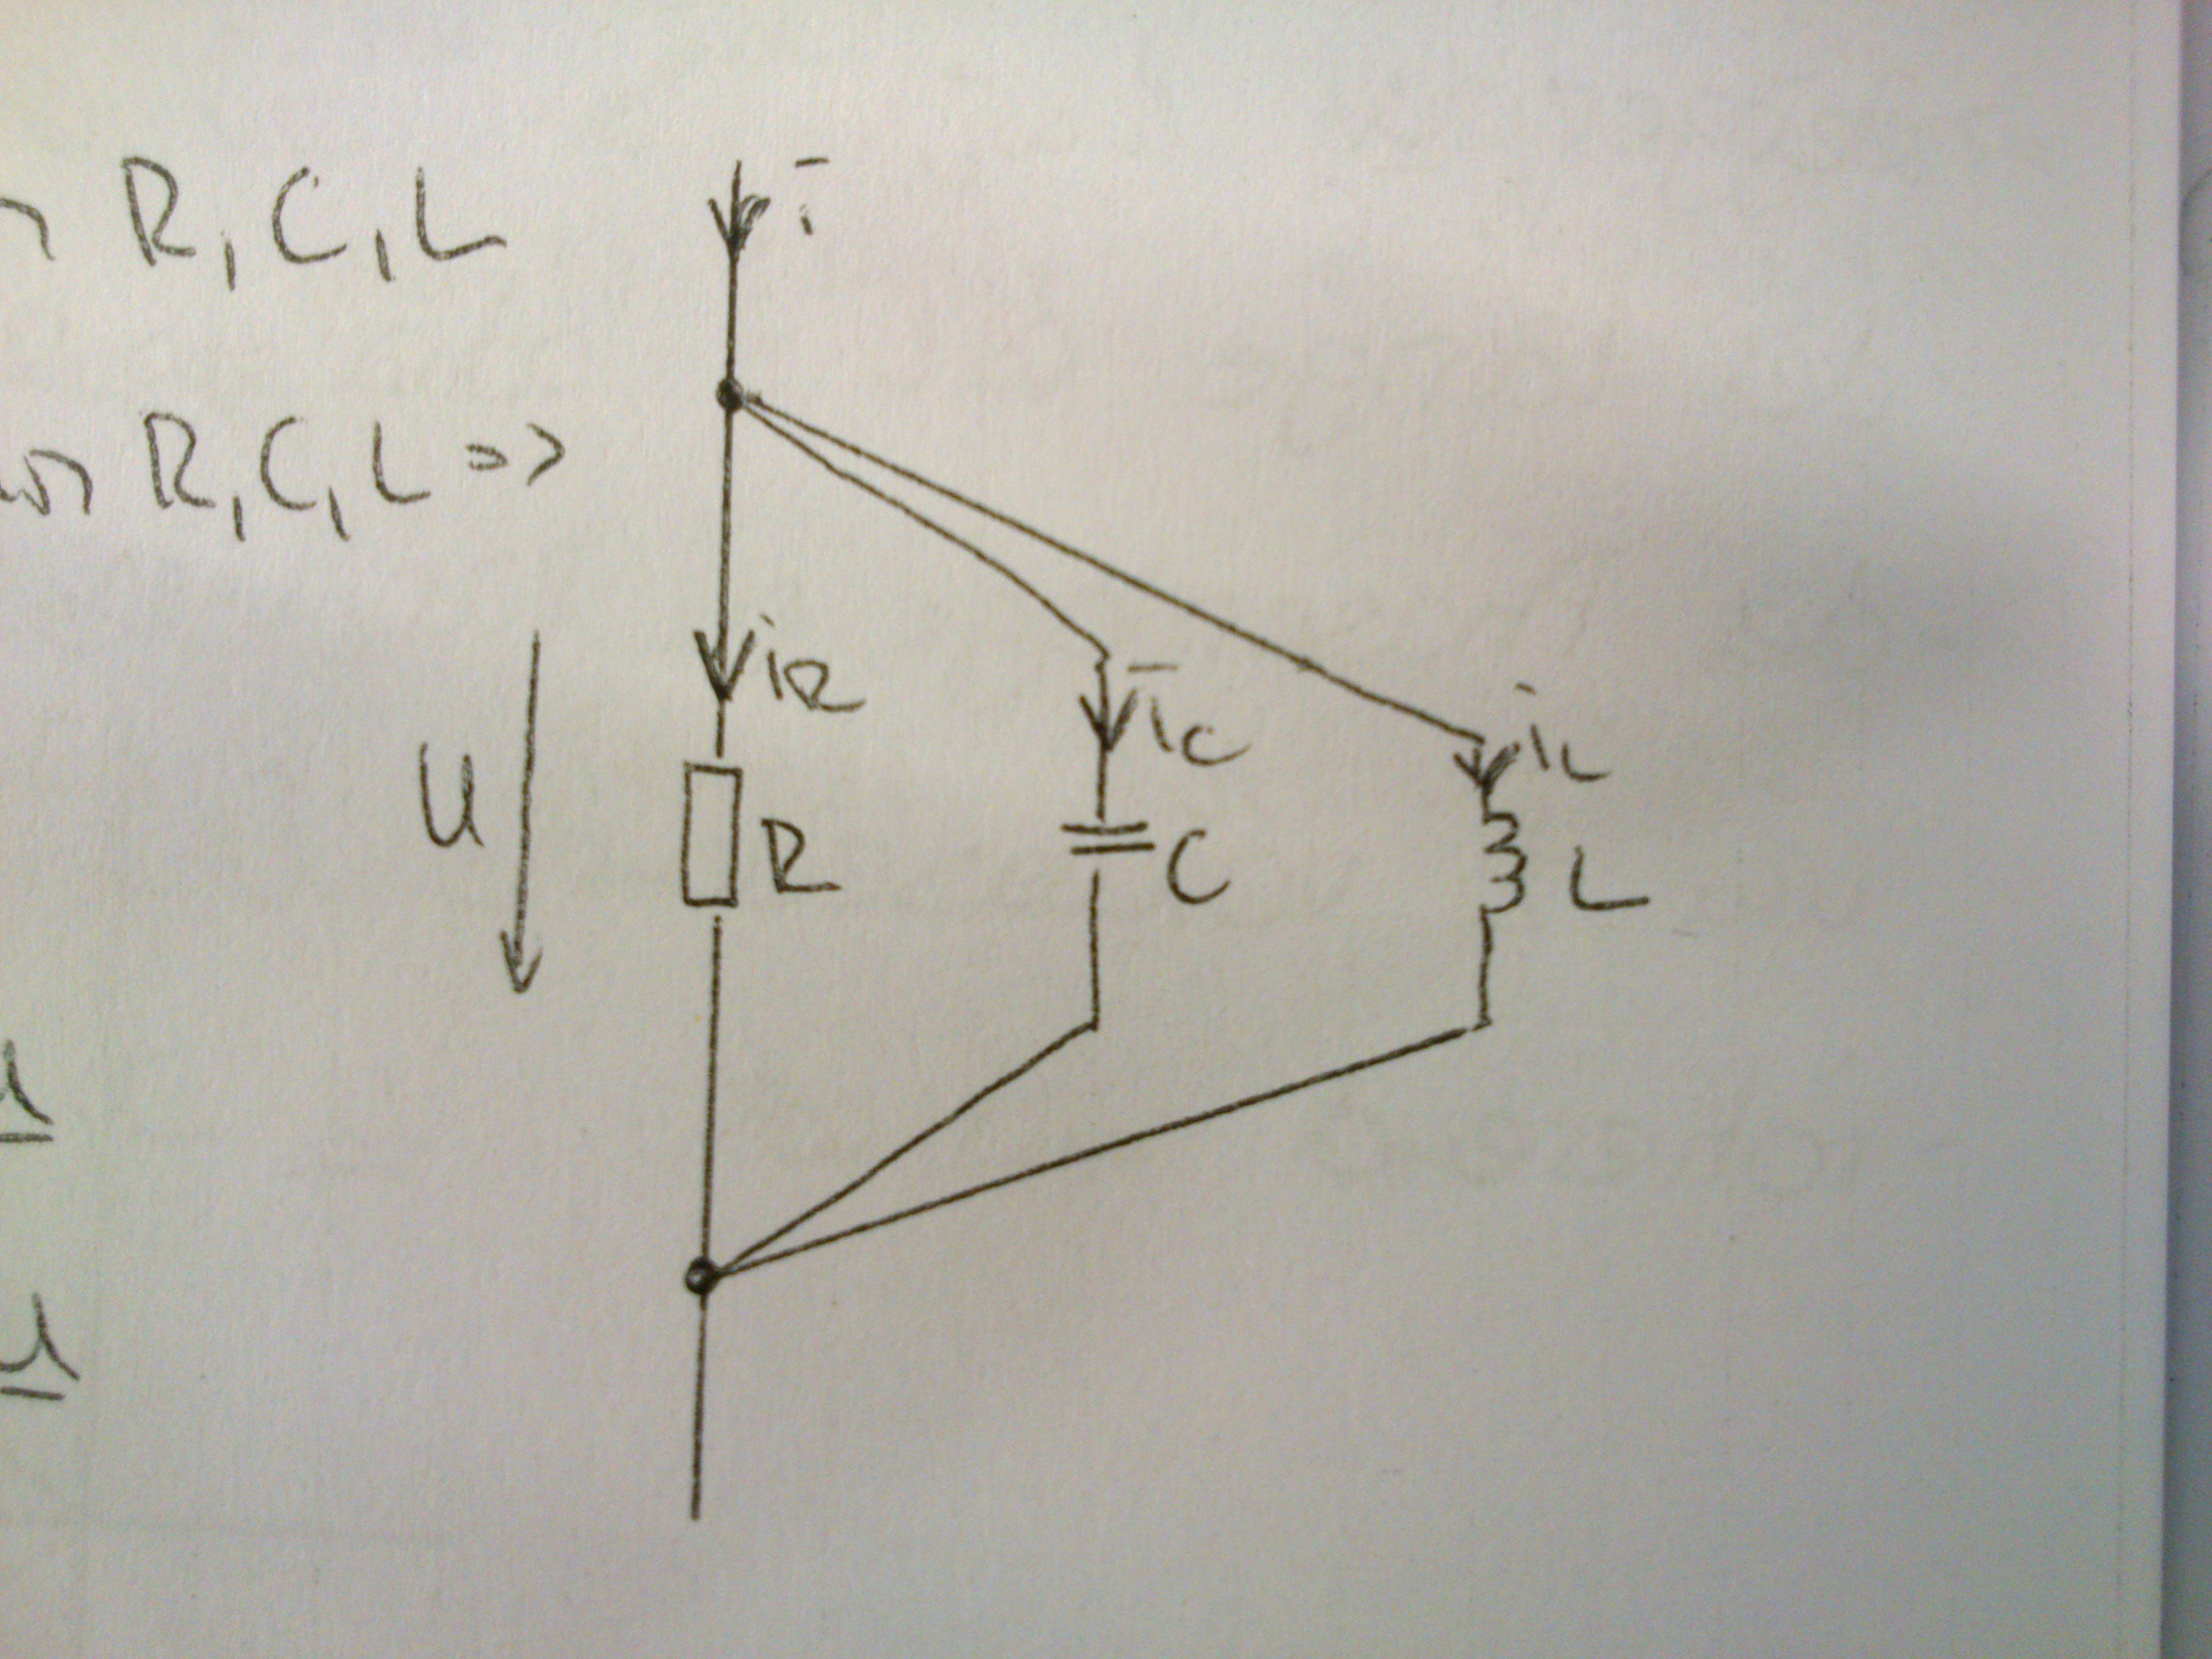 R, C, L
R, C, L =>
u
i
iR
R
iC
C
iL
L